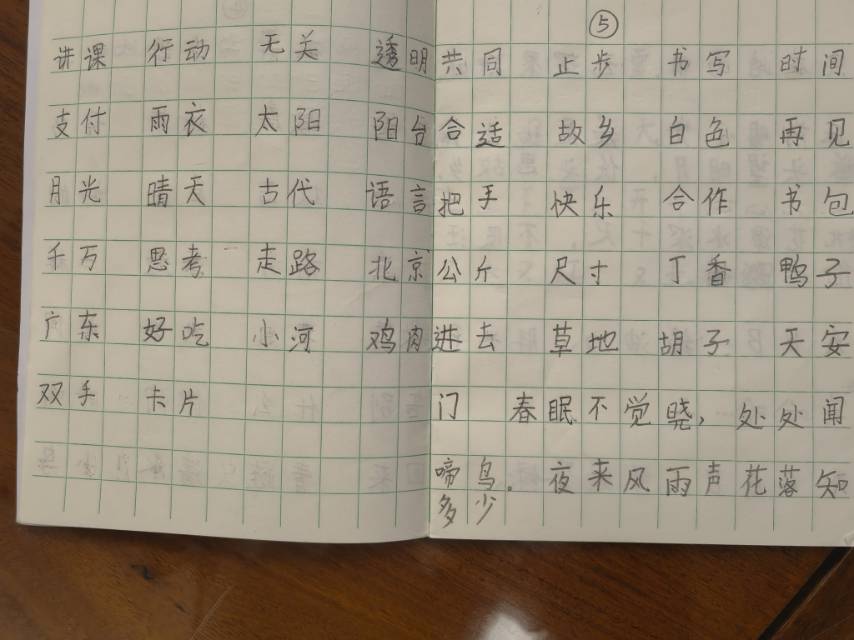 讲课 行动 无关 透明
支付 雨衣 太阳 阳台
月光 晴天 古代 语言
千万 思考 走路 北京
广东 好吃 小河 鸡肉
双手 卡片
⑤
共同 止步 书写 时间
合适 故乡 白色 再见
把手 快乐 合作 书包
公斤 尺寸 丁香 鸭子
进去 草地 胡子 天安
门 春眠不觉晓，处处闻
啼鸟。夜来风雨声花落知
多少